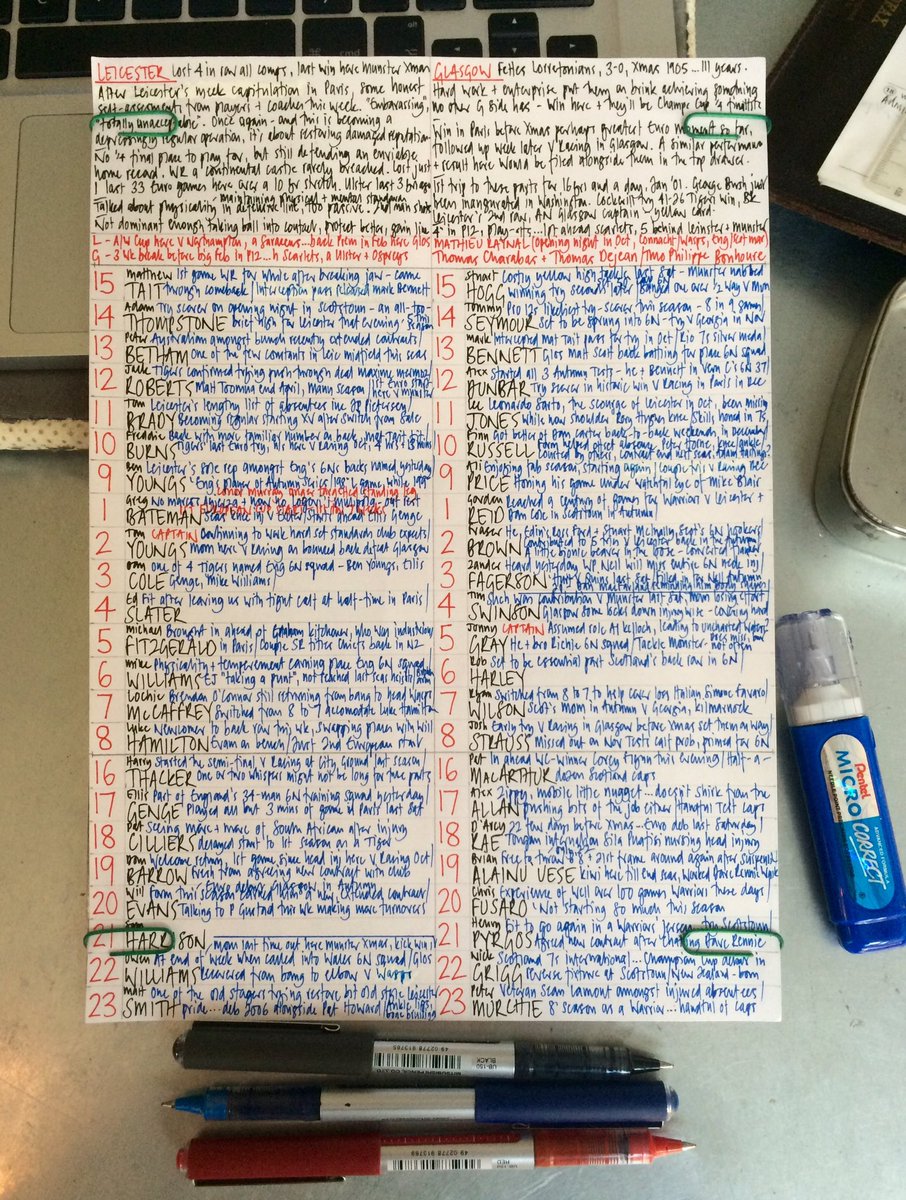 LEICESTER Lost 4 in row all comps, last win here Munster Xmas
After Leicester's meek capitulation in Paris, some honest
self-assessment from players + coaches this week. "Embarrassing,
"totally unacceptable". Once again - and this is becoming a
depressingly regular operation, it's about restoring damaged reputation
No 1/4 final place to play for, but still defending an enviable
home record. WR a continental castle rarely breached. Lost just
1 last 33 Euro games here over a 10 yr stretch. Ulster last 3
maintaining physical + mental standards
Talked about physicality in defensive line, too passive. 2nd man shots
Not dominant enough taking ball into contact, protect better, gain line
L - A/W Cup here v Northampton, a Saracens...back Prem in Feb here Glos
G - 3 wk break before big Feb in P12...h Scarlets, a Ulster + Ospreys
GLASGOW Fettes Lorettonians, 3-0, Xmas 1905...111 years.
Hard work + enterprise put them on brink achieving something
no other G side has - win here + they'll be Champs Cup 1/4 finalists
Win in Paris before Xmas perhaps greatest Euro moment so far,
followed up week later v Racing in Glasgow. A similar performance
+ result here would be filed alongside them in the top drawer.
1st trip to these parts for 16 yrs and a day, Jan '01. George Bush just
been inaugurated in Washington. Cockerill try 41-26 Tigers win,
Leicester's 2nd row, an Glasgow captain - yellow card.
4th in P12, play-offs...lot ahead Scarlets, 5 behind Leinster + Munster
MATHIEU RAYNAL (opening night in Oct, Connacht/Wasps, Eng/Scot Mar)
Thomas Charabas + Thomas Dejean/TMO Philippe Bonhoure
15 Matthew 1st game WR for while after breaking jaw - came
TAIT through comeback/Interception pass released Mark Bennett
14 Adam Try scorer on opening night in Scotstoun - an all-too-
THOMPSTONE brief high for Leicester that evening
13 Peter Australian amongst bunch recently extended contracts/
BETHAM one of the few constants in Leic midfield this seas
12 Jack Tigers confirmed trying push through deal Maxime Mermoz
ROBERTS Matt Toomua end April, Manu season/1st Euro start
here v Munster
11 Tom Leicester's lengthy list of absentees inc JP Pietersen/
BRADY Becoming regular starting XV after switch from Sale
10 Freddie Back with more familiar number on back, not Tait
BURNS Tigers' last Euro try, his here v Racing Oct
9 Ben Leicester's sole rep amongst Eng's 6Ns backs named yesterday
YOUNGS Eng's player of Autumn Series
1 Greg
BATEMAN
2 Tom CAPTAIN Continuing to work hard set standards club expects/
YOUNGS mom here v Racing on bounce back defeat Glasgow
3 Dan one of 4 Tigers named Eng 6N squad - Ben Youngs, Ellis
COLE Genge, Mike Williams/
4 Ed Fit after leaving us with tight calf at half-time in Paris/
SLATER
5 Michael Brought in ahead of Graham Kitchener, who was industrious
FITZGERALD in Paris/couple SR titles Chiefs back in NZ
6 Mike Physicality + temperement earning place Eng 6N squad
WILLIAMS EJ "taking a punt", not reached last seas heights
7 Lachie Brendan O'Connor still returning from bang to head Wasps
McCAFFREY Switched from 8 to 7 accomodate Luke Hamilton
8 Luke Newcomer to back row this wk, swapping places with Will
HAMILTON Evans on bench/Just 2nd European start
16 Harry Started the semi-final v Racing at City Ground last season/
THACKER One or two whispers might not be long for these parts
17 Ellis Part of England's 34-man 6N training squad yesterday/
GENGE Played all but 3 mins of game in Paris last Sat
18 Pat Seeing more + more of South African after injury
CILLIERS delayed start to 1st season as a Tiger
19 Dom Welcome return, 1st game since head inj here v Racing Oct/
BARROW Fresh from agreeing new contract with club
20 Will Form this season earned him a new, extended contract/
EVANS Talking to P Gustard this wk making more turnovers
21 Sam
HARRISON mom last time out here Munster Xmas, kick win/
22 Owen At end of week when called into Wales 6N squad/Glos
WILLIAMS Recovered from bang to elbow v Wasps
23 Matt One of the old stagers trying restore bit old style Leicester
SMITH pride...deb 2006 alongside Pat Howard/Ankle ligs,
bone bruising
15 Stuart Costly yellow high tackle last Sat - Munster nabbed
HOGG winning try seconds later/Banged one over 1/2 way v Mun
14 Tommy Pro 12's likeliest try-scorer this season - 8 in 9 games/
SEYMOUR Set to be sprung into 6N - try v Georgia in Nov
13 Mark Intercepted Mat Tait pass for try in Oct/Rio 7s silver medal
BENNETT Glos Matt Scott back battling for place 6N squad
12 Alex Started all 3 Autumn Tests - he + Bennett in Vern C's 6N 37/
DUNBAR Try scorer in historic win v Racing in Paris in Dec
11 Lee Leonardo Sarto, the scourge of Leicester in Oct, been missing
JONES while now shoulder. Rory Hughes knee. Skills honed in 7s
10 Finn Got better of Dan Carter back-to-back weekends in December
RUSSELL
9 Ali Enjoying fab season, starting again couple tries v Racing Dec
PRICE Honing his game under watchful eye of Mike Blair
1 Gordon Reached a century of games for Warriors v Leicester +
REID Dan Cole in Scotstoun in Autumn
2 Fraser He, Edin's Ross Ford + Stuart McInally Scot's 6N hookers/
BROWN
3 Zander Heard yesterday WP Nel will miss entire 6N neck inj/
FAGERSON
4 Tim Such was contribution v Munster last Sat, mom losing effort/
SWINSON Glasgow some locks down injury wise - covering hard
5 Jonny CAPTAIN Assumed role Al Kellock, leading to uncharted waters?
GRAY He + bro Richie 6N squad/Tackle Monster- Does miss, but
not often
6 Rob Set to be essential part Scotland's back row in 6N/
HARLEY
7 Ryan Switched from 8 to 7 to help cover loss Italian Simone Favaro/
WILSON Scot's mom in Autumn v Georgia, Kilmarnock
8 Josh Early try v Racing in Glasgow before Xmas set them on way/
STRAUSS Missed out on Nov Tests calf prob, primed for 6N
16 Pat In ahead WC-winner Corey Flynn this evening/Half-a-
MacARTHUR dozen Scotland caps
17 Alex Zippy, mobile little nugget...doesn't shirk from the
ALLAN pushing bits of the job either/Handful Test caps
18 D'Arcy 22 few days before Xmas...Euro deb last Saturday/
RAE Tongan international Sila Puafisi nursing head injury
19 Brian Free to throw 6'8 + 21st frame around again after suspension
ALAINU'UESE Kiwi here till end seas, worked
20 Chris Experience of well over 100 games Warriors these days/
FUSARO Not starting so much this season
21 Henry Fit to go again in a Warriors jersey...try Scotstoun/
PYRGOS Agreed new contract after chatting Dave Rennie
22 Nick Scotland 7s international...Champions Cup debut in
GRIGG reverse fixture at Scotstoun/New Zealand-born
23 Peter Veteran Sean Lamont amongst injured absentees/
MURCHIE 8th season as a Warrior...handful of caps
Pentel
MICRO
CORRECT
ADVANCED FORMULA
49 02778 913765
UB-150
BLACK
49 02778 913789
RED
cmd